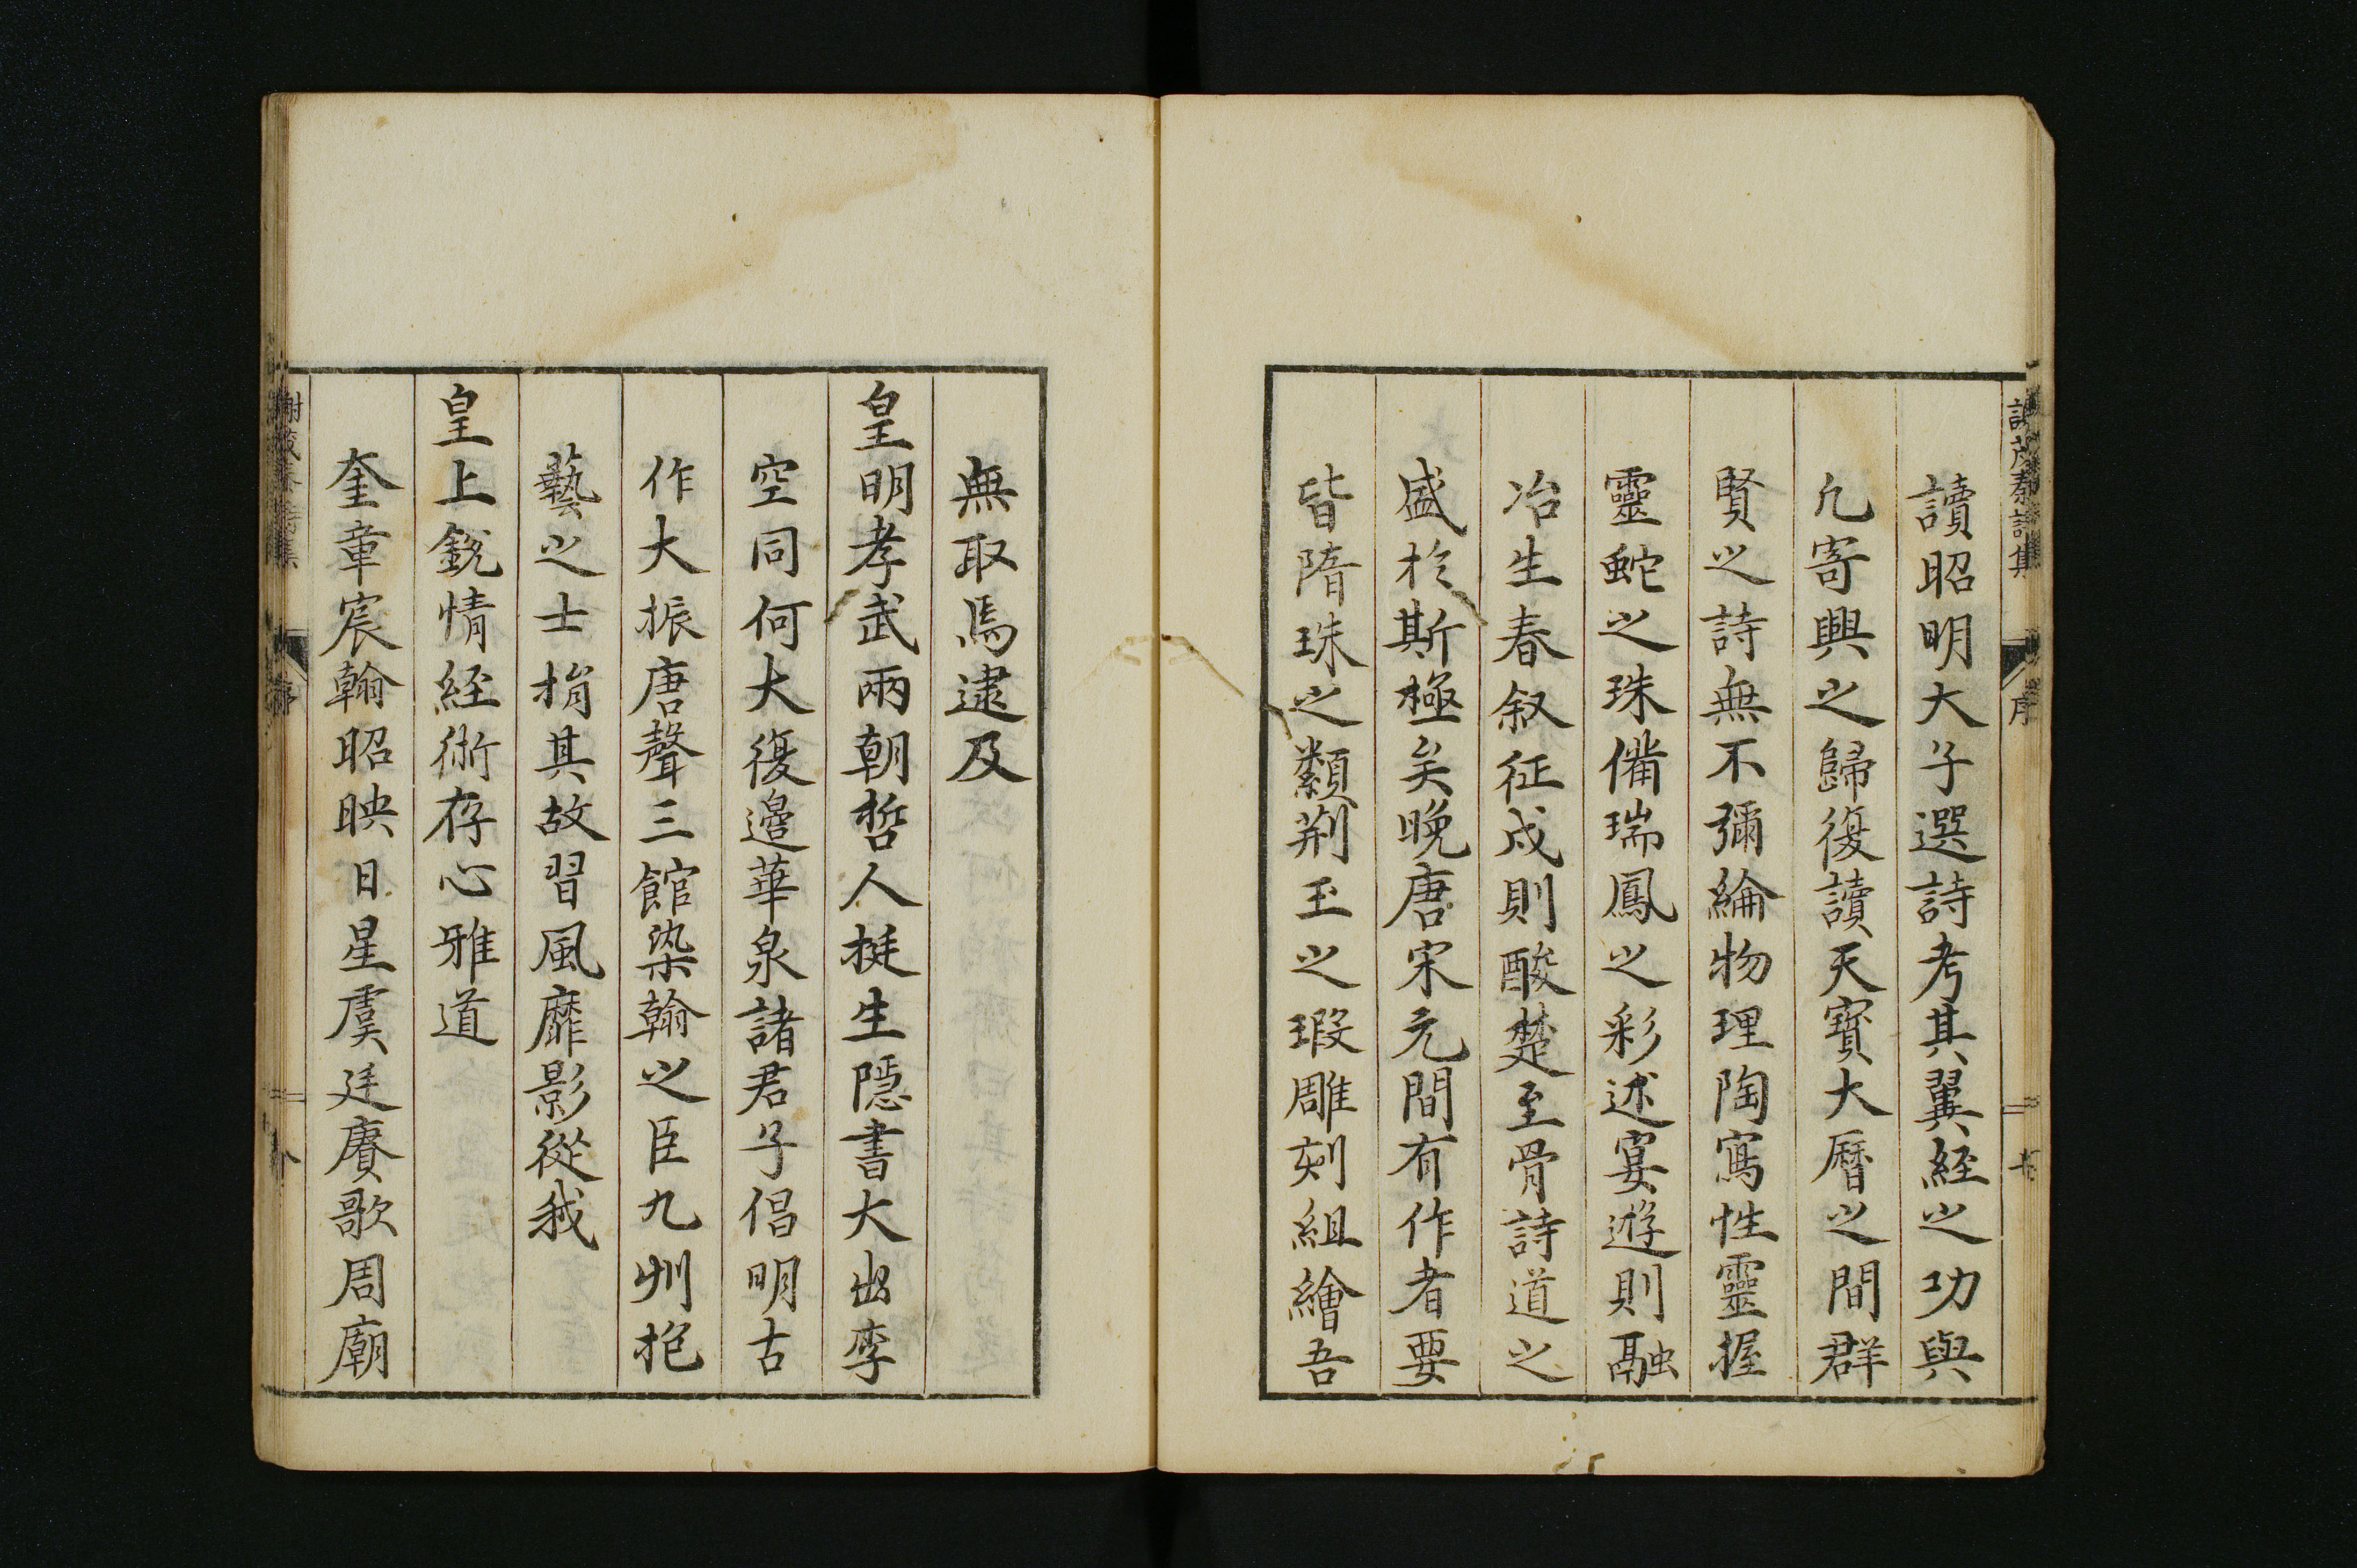 謝茂秦詩集 序 七
讀昭明大子選詩考其翼経之功與
凢寄興之歸復讀天寶大曆之間群
賢之詩無不彌綸物理陶寫性靈握
靈蛇之珠備瑞鳳之彩述宴遊則融
冶生春叙征戍則酸楚至骨詩道之
盛於斯極矣晚唐宋元間有作者要
皆隋珠之纇荆玉之瑕雕刻組繪吾
無取焉逮及
皇明孝武兩朝哲人挺生隱書大出李
空同何大復邉華泉諸君子倡明古
作大振唐聲三館染翰之臣九州抱
藝之士捐其故習風靡影從我
皇上銳情経術存心雅道
奎章宸翰昭映日星虞廷賡歌周廟
謝茂秦詩集 序 八